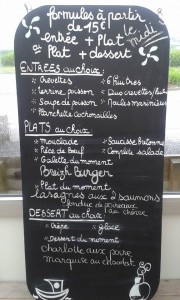 formules à partir
de 15€
le midi
entrée + Plat
ou Plat + dessert
ENTREES au choix:
* Crevettes
* 6 Huîtres
* terrine poisson
* Duo crevettes/huîtres
* Soupe de poisson
* Moules marinières
* Planchette cochonnailles
PLATS au choix:
* Mouclade
* Saucisse bretonne
* Pièce du Boeuf
* Complète salade
* Galette du moment
Breizh Burger
* Plat du moment
lasagnes aux 2 saumons
fondue de poireaux
DESSERT au choix:
au chèvre
* Crêpe
* glace
* Dessert du moment
charlotte aux poire
marquise au chocolat